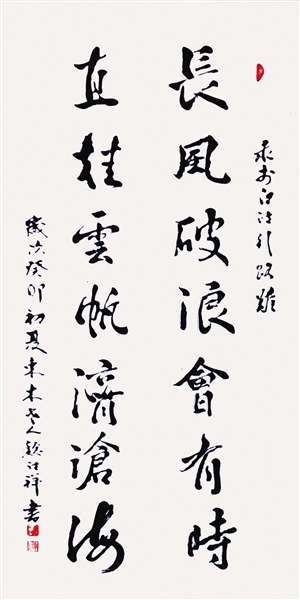 录李白诗行路難
長風破浪會有時
直挂雲帆濟滄海
歲次癸卯初夏東木老人祥書